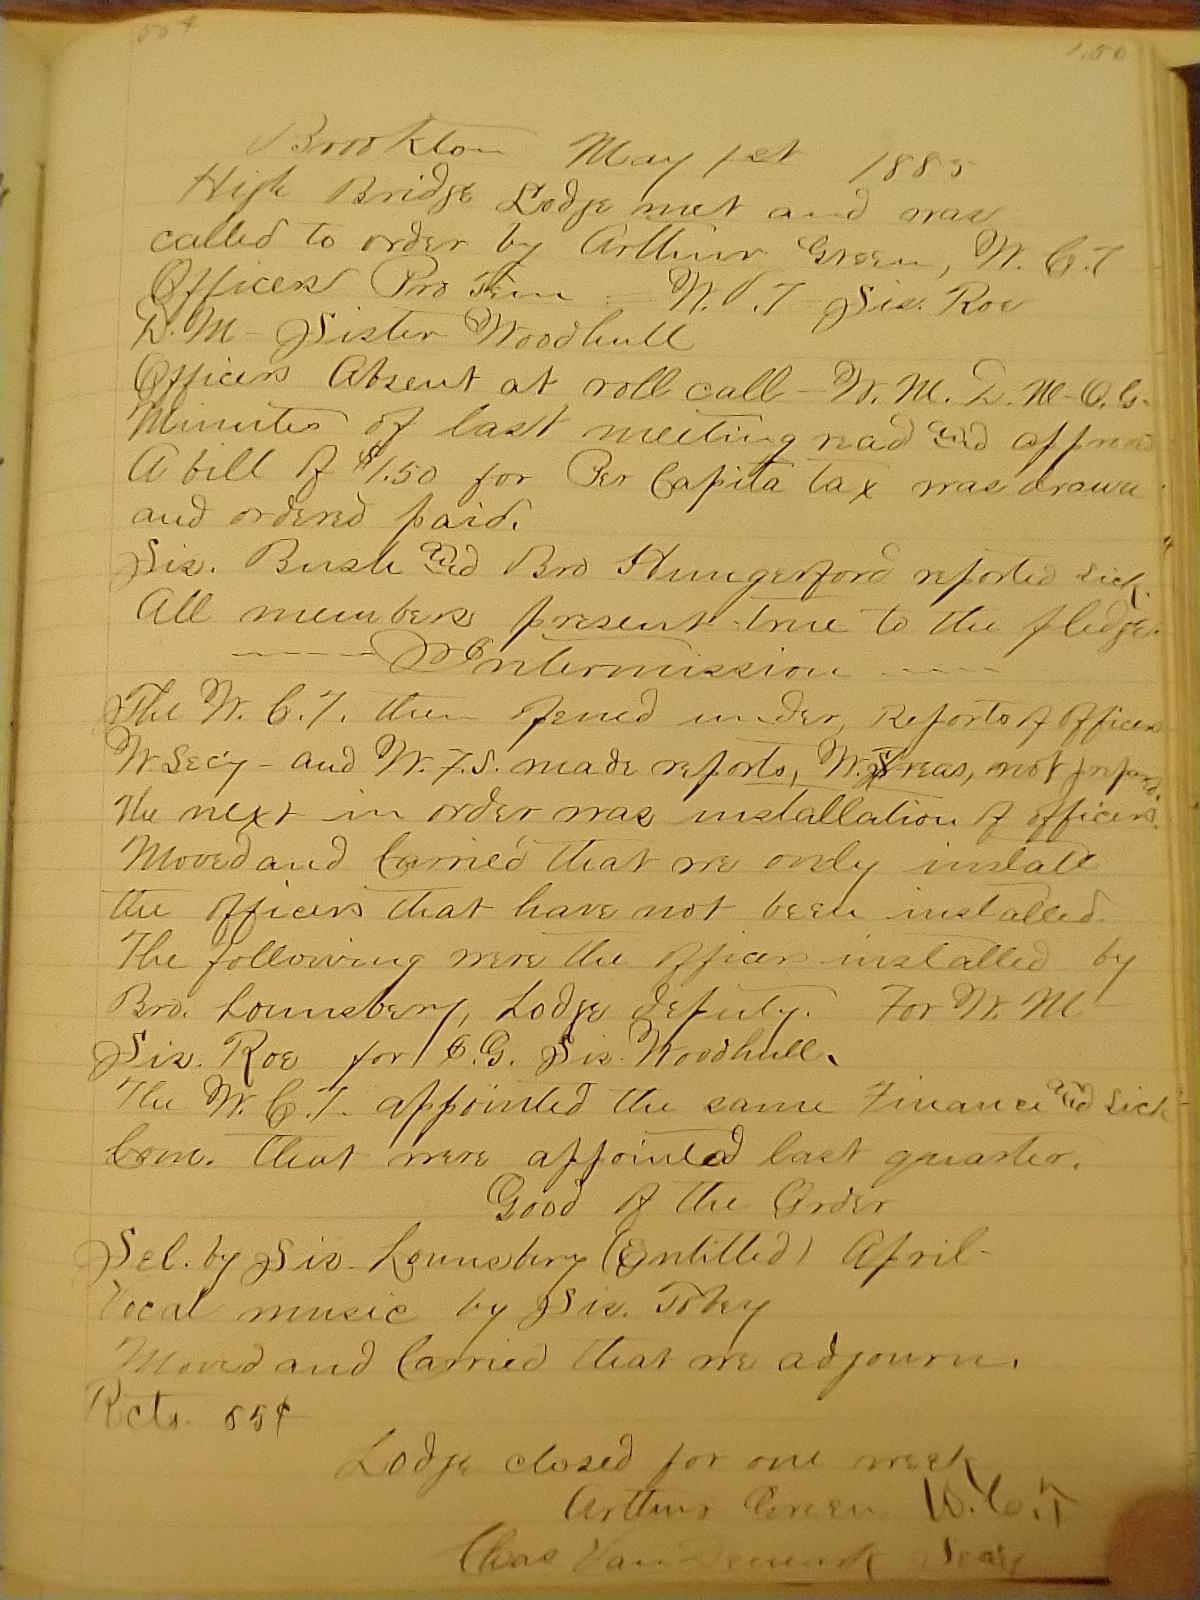 55¢
1.50
Brookton May 1st 1885
High Bridge Lodge met and was
called to order by Arthur Green, W. C. T
Officers Pro Tem = W. V. T Sis. Roe
D. M - Sister Woodhull
Officers Absent at roll call - W. M. D. M - O. G.
Minutes of last meeting read and approved
A bill of $1.50 for Per Capita tax was drawn
and ordered paid.
Sis. Bush and Bro Hungerford reported sick.
All members present true to the pledge.
Intermission
The W. C. T. then opened under, Reports of Officers
W. Secy - and W. F. S. made reports, W. Treas, not prepared.
The next in order was installation of officers.
Moved and Carried that we only install
the officers that have not been installed.
The following were the officers installed by
Bro. Lounsbery, Lodge deputy. For W. M
Sis. Roe for O. G. Sis. Woodhull.
The W. C. T. appointed the same Finance and Sick
Com. that were appointed last quarter.
Good of the Order
Sel. by Sis. Lounsbery (Entitled) April
Vocal music by Sis. Tobey
Moved and Carried that we adjourn.
Rcts. 55¢
Lodge closed for one week
Arthur Green W. C. T
Chas Van Demark Secy